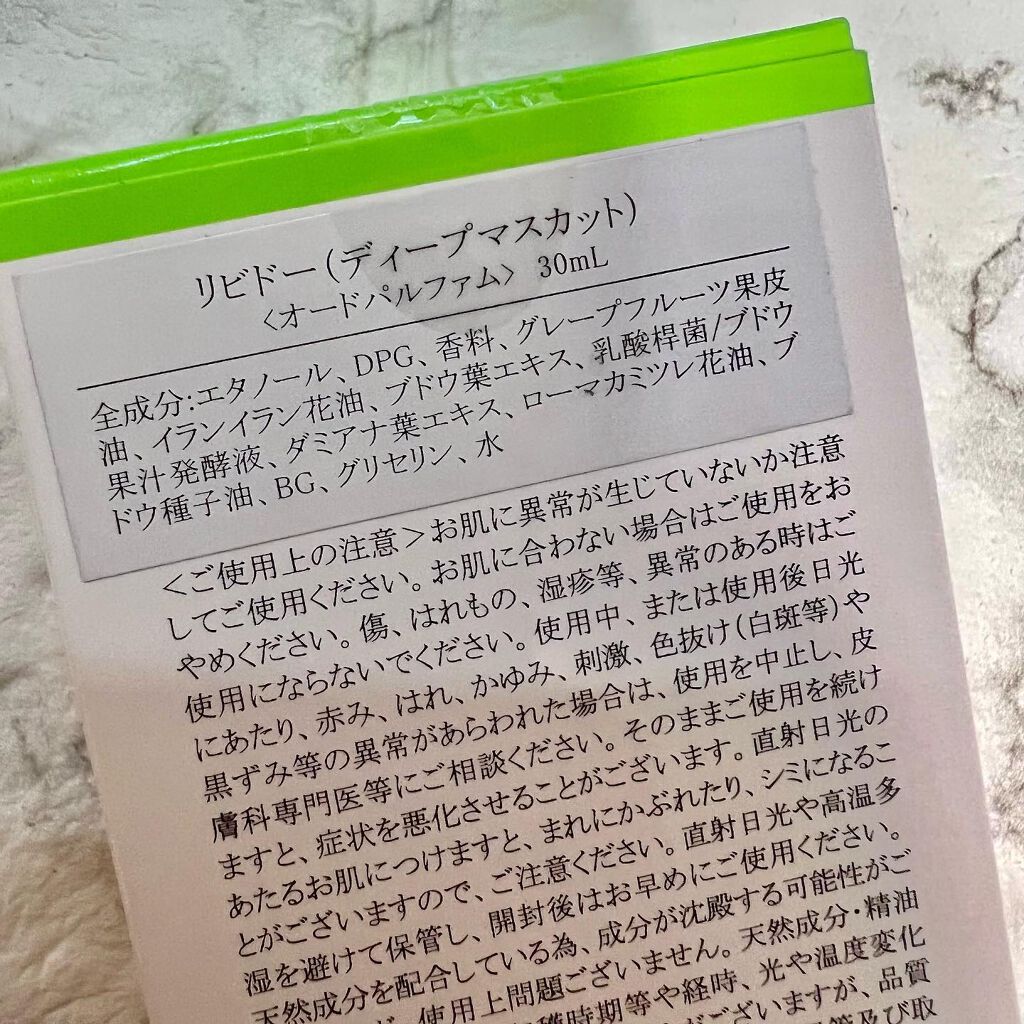 リビドー(ディープマスカット)
〈オードパルファム〉 30mL
全成分:エタノール、DPG、香料、グレープフルーツ果皮
油、イランイラン花油、ブドウ葉エキス、乳酸桿菌/ブドウ
果汁発酵液、ダミアナ葉エキス、ローマカミツレ花油、ブ
ドウ種子油、BG、グリセリン、水
<ご使用上の注意>お肌に異常が生じていないか注意
してご使用ください。お肌に合わない場合はご使用をお
やめください。傷、はれもの、湿疹等、異常のある時はご
使用にならないでください。使用中、または使用後日光
にあたり、赤み、はれ、かゆみ、刺激、色抜け(白斑等)や
黒ずみ等の異常があらわれた場合は、使用を中止し、皮
膚科専門医等にご相談ください。そのままご使用を続け
ますと、症状を悪化させることがございます。直射日光の
あたるお肌につけますと、まれにかぶれたり、シミになるこ
とがございますので、ご注意ください。直射日光や高温多
湿を避けて保管し、開封後はお早めにご使用ください。
天然成分を配合している為、成分が沈殿する可能性がご
使用上問題ございません。天然成分・精油
時期等や経時、光や温度変化
がございますが、品質
及び取